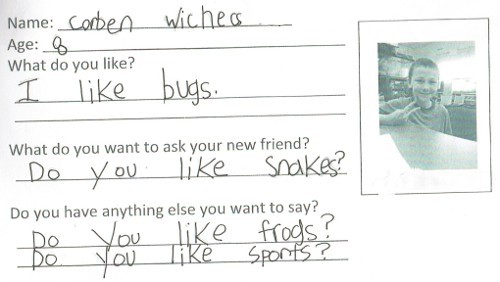 Name: corben wichers
Age: 8
What do you like?
I like bugs.
What do you want to ask your new friend?
Do you like snakes?
Do you have anything else you want to say?
Do you like frogs?
Do you like sports?